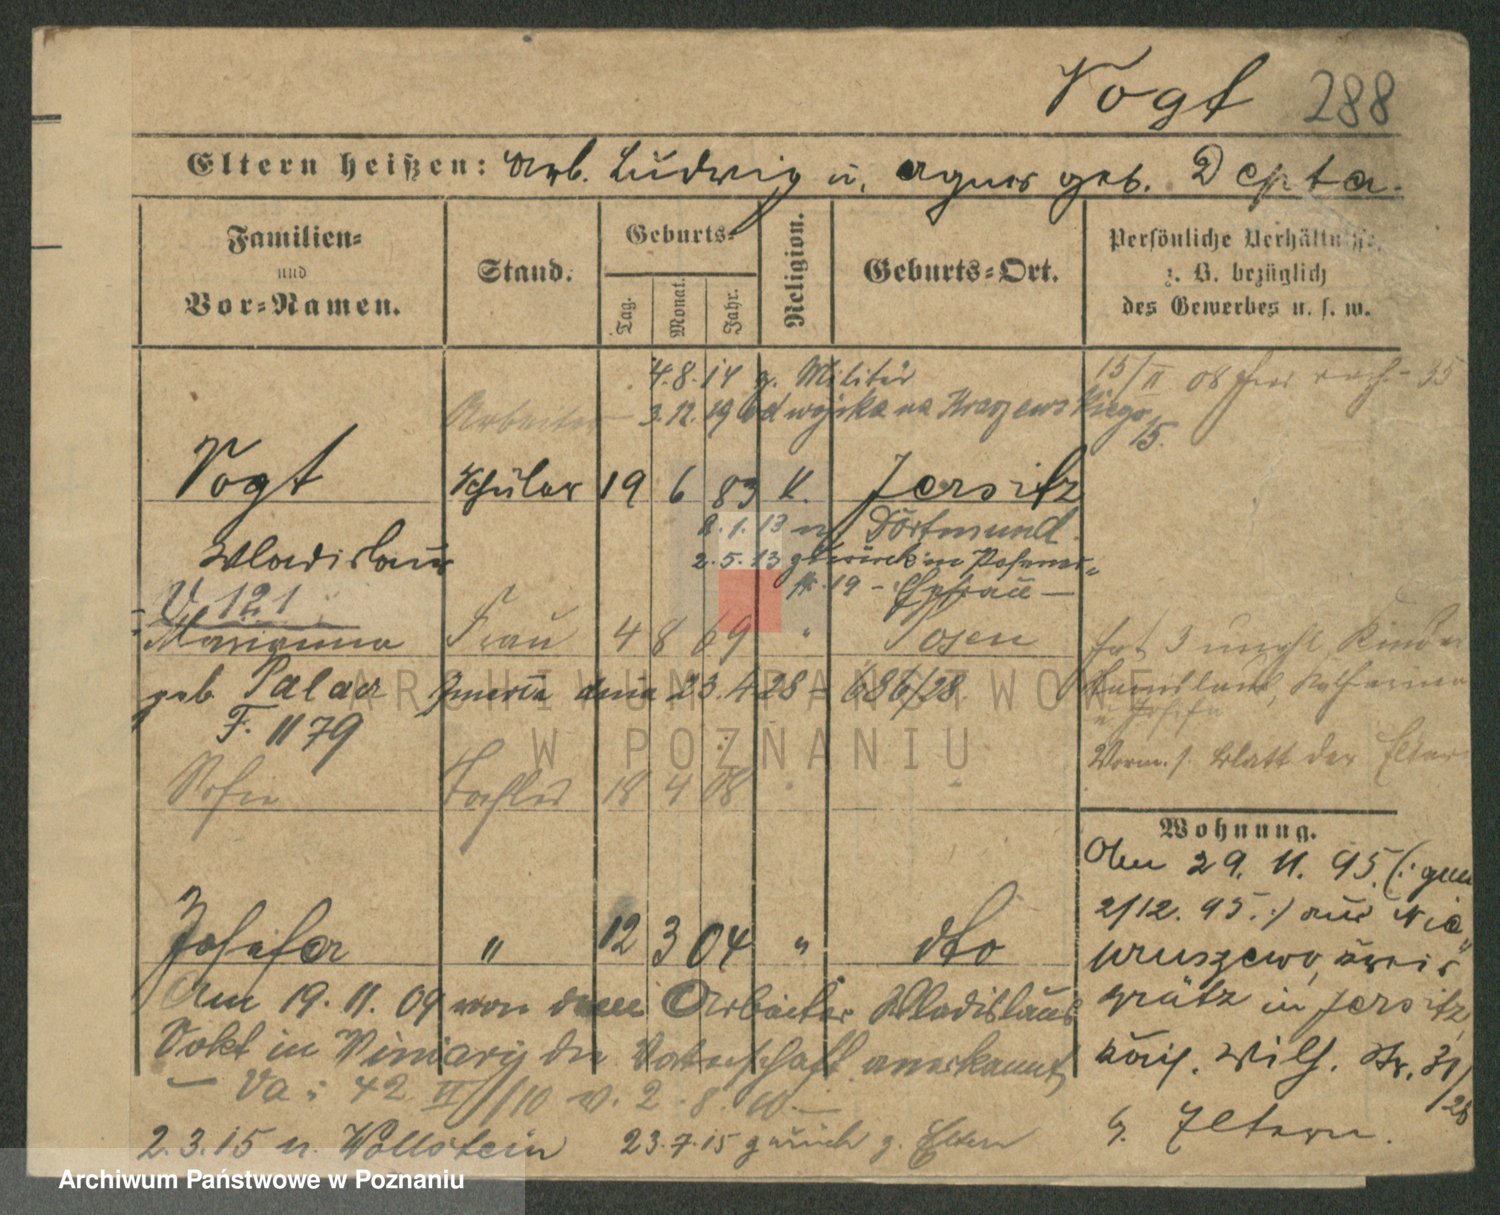 Vogt 288
Eltern heißen: Arb. Ludwig u. Agnes geb. Depta.
Familien- und Vor-Namen.
Stand.
Geburts-
Tag.
Monat.
Jahr.
Religion.
Geburts-Ort.
Persönliche Verhältnisse,
z. B. bezüglich
des Gewerbes u. s. w.
4.8.14 z. Militär
15/II 08
Arbeiter 3.12.19 od wojska na Kraszewskiego
15.
Vogt Schüler 19 6 83 k. Jersitz
2.1.13 n. Dortmund.
Wladislaus 2.5.13 zurück in Posener-
19 - Ehefrau -
V. 121
Marianna Frau 4 8 69 " Posen
hat 3 unehl. Kinder
geb. Palacz
23.4.28 - 686/28
Katharina
u. Josefa
F. 1179
Vorm. s. Blatt der Eltern
Sofie Tochter 18 4 08 " "
Wohnung.
Josefa " 12 3 04 " dto
Am 29. 11. 95. (: gem
2/12. 95. :) aus Nie-
pruszewo, Kreis
Grätz in Jersitz,
Kais. Wilh. Str. 31/
28
b. Eltern.
Am 19. 11. 09 von dem Arbeiter Wladislaus
Vokt in Winiary die Vaterschaft anerkannt,
- Va: 42 II/10 v. 2.8.10 -
2.3.15 n. Wollstein 23.7.15 zurück z. Eltern
ARCHIWUM PAŃSTWOWE
W POZNANIU
Archiwum Państwowe w Poznaniu